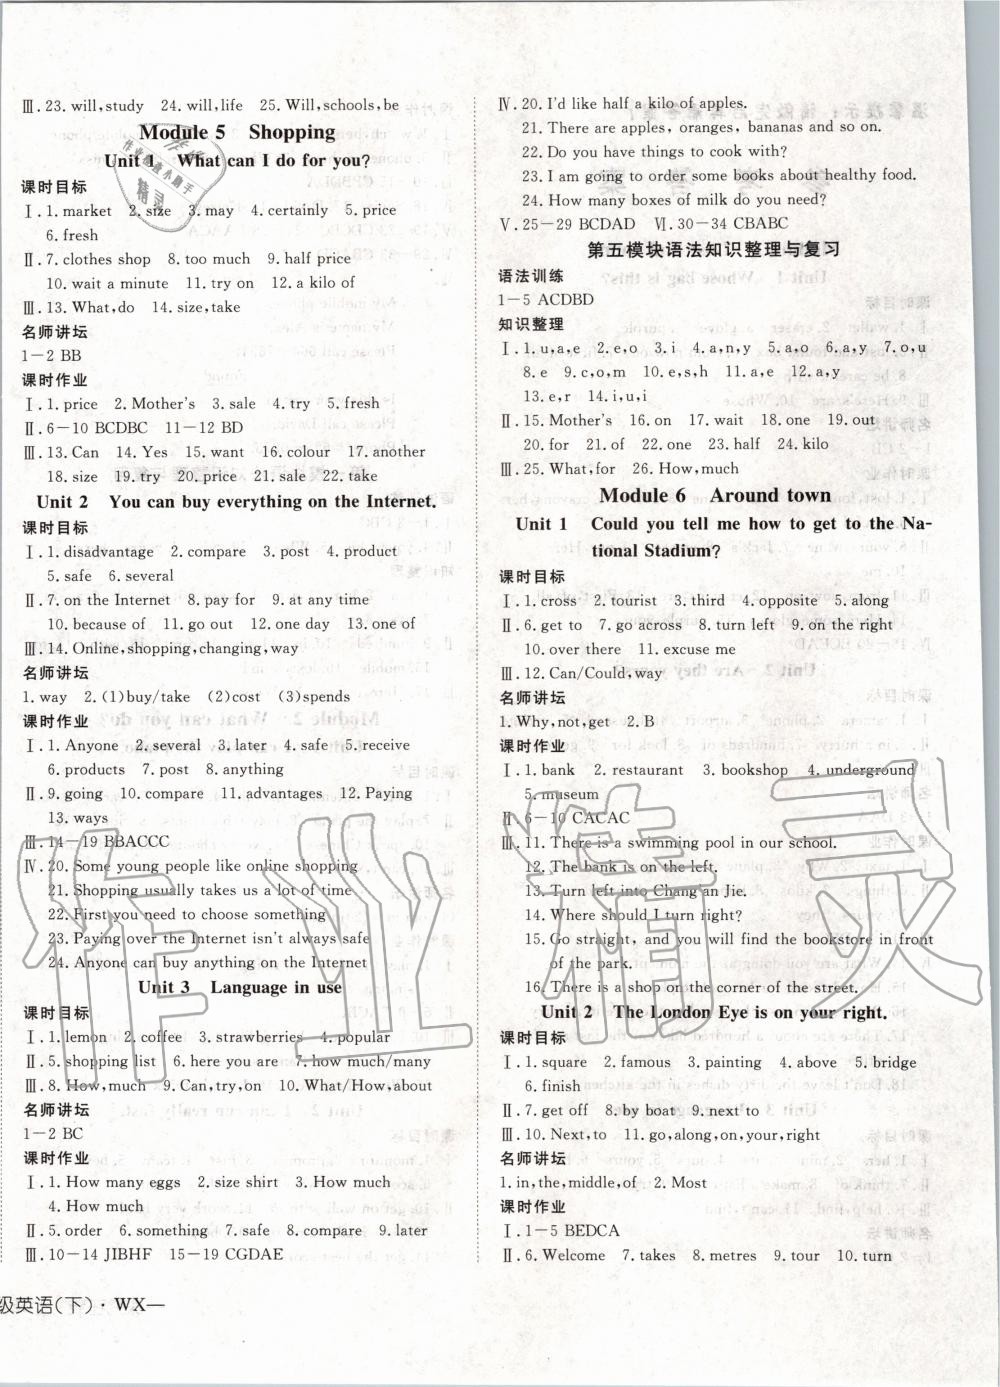 Ⅲ. 23. will,study 24. will,life 25. Will,schools,be
Module 5 Shopping
Unit 1 What can I do for you?
课时目标
Ⅰ. 1. market 2. size 3. may 4. certainly 5. price
6. fresh
Ⅱ. 7. clothes shop 8. too much 9. half price
10. wait a minute 11. try on 12. a kilo of
Ⅲ. 13. What,do 14. size,take
名师讲坛
1－2 BB
课时作业
Ⅰ. 1. price 2. Mother's 3. sale 4. try 5. fresh
Ⅱ. 6－10 BCDBC 11－12 BD
Ⅲ. 13. Can 14. Yes 15. want 16. colour 17. another
18. size 19. try 20. price 21. sale 22. take
Unit 2 You can buy everything on the Internet.
课时目标
Ⅰ. 1. disadvantage 2. compare 3. post 4. product
5. safe 6. several
Ⅱ. 7. on the Internet 8. pay for 9. at any time
10. because of 11. go out 12. one day 13. one of
Ⅲ. 14. Online,shopping,changing,way
名师讲坛
1. way 2. (1)buy/take (2)cost (3)spends
课时作业
Ⅰ. 1. Anyone 2. several 3. later 4. safe 5. receive
6. products 7. post 8. anything
Ⅱ. 9. going 10. compare 11. advantages 12. Paying
13. ways
Ⅲ. 14－19 BBACCC
Ⅳ. 20. Some young people like online shopping
21. Shopping usually takes us a lot of time
22. First you need to choose something
23. Paying over the Internet isn't always safe
24. Anyone can buy anything on the Internet
Unit 3 Language in use
课时目标
Ⅰ. 1. lemon 2. coffee 3. strawberries 4. popular
Ⅱ. 5. shopping list 6. here you are 7. how much/many
Ⅲ. 8. How,much 9. Can,try,on 10. What/How,about
名师讲坛
1－2 BC
课时作业
Ⅰ. 1. How many eggs 2. size shirt 3. How much
4. How much
Ⅱ. 5. order 6. something 7. safe 8. compare 9. later
Ⅲ. 10－14 JIBHF 15－19 CGDAE
级英语(下)·WX—
Ⅳ. 20. I'd like half a kilo of apples.
21. There are apples, oranges, bananas and so on.
22. Do you have things to cook with?
23. I am going to buy some healthy food.
24. How many boxes of milk do you need?
Ⅴ. 25－29 BCDAD Ⅵ. 30－34 CBABC
第五模块语法知识整理与复习
语法训练
1－5 ACDBD
知识整理
Ⅰ. 1. u,a,e 2. e,o 3. i 4. a,n,y 5. a,o 6. a,y 7. o,u
8. e 9. c,o,m 10. e,s,h 11. a,e 12. a,y
13. e,r 14. i,u,i
Ⅱ. 15. Mother's 16. on 17. wait 18. one 19. out
20. for 21. of 22. one 23. half 24. kilo
Ⅲ. 25. What,for 26. How,much
Module 6 Around town
Unit 1 Could you tell me how to get to the Na-
tional Stadium?
课时目标
Ⅰ. 1. cross 2. tourist 3. third 4. opposite 5. along
Ⅱ. 6. get to 7. go across 8. turn left 9. on the right
10. over there 11. excuse me
Ⅲ. 12. Can/Could,way
名师讲坛
1. Why,not,get 2. B
课时作业
Ⅰ. 1. bank 2. restaurant 3. bookshop 4. underground
5. museum
Ⅱ. 6－10 CACAC
Ⅲ. 11. There is a swimming pool in our school.
12. The bank is on the left.
13. Turn left into Chang'an Jie.
14. Where should I turn right?
15. Go straight, and you will find the bookstore in front
of the park.
16. There is a shop on the corner of the street.
Unit 2 The London Eye is on your right.
课时目标
Ⅰ. 1. square 2. famous 3. painting 4. above 5. bridge
6. finish
Ⅱ. 7. get off 8. by boat 9. next to
Ⅲ. 10. Next,to 11. go,along,your,right
名师讲坛
1. in,the,middle,of 2. Most
课时作业
Ⅰ. 1－5 BEDCA
Ⅱ. 6. Welcome 7. takes 8. metres 9. tour 10. turn
作业精灵